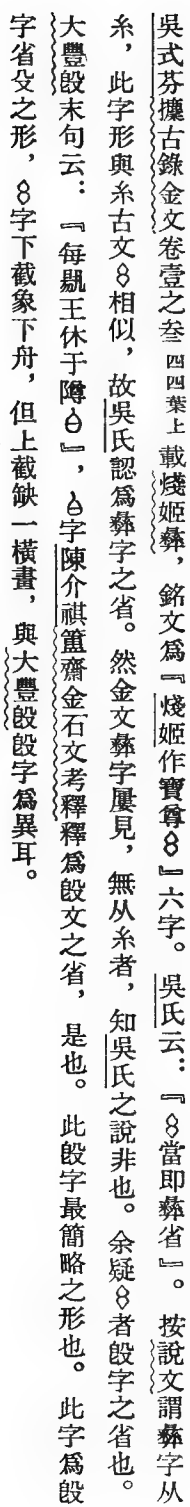 吳式芬攗古錄金文卷壹之叁四四葉上載㷼姬彝，銘文爲『㷼姬作寶尊𠄏』六字。吳氏云：『𠄏當即彝省』。按說文謂彝字从
糸，此字形與糸古文𠄏相似，故吳氏認爲彝字之省。然金文彝字屢見，無从糸者，知吳氏之說非也。余疑𠄏者𣪘字之省也。
大豐𣪘末句云：『每𩰫王休于𨺅』，字陳介祺簠齋金石文考釋釋爲𣪘文之省，是也。此𣪘字最簡略之形也。此字爲𣪘
字省殳之形，字下截象下舟，但上截缺一橫畫，與大豐𣪘𣪘字爲異耳。